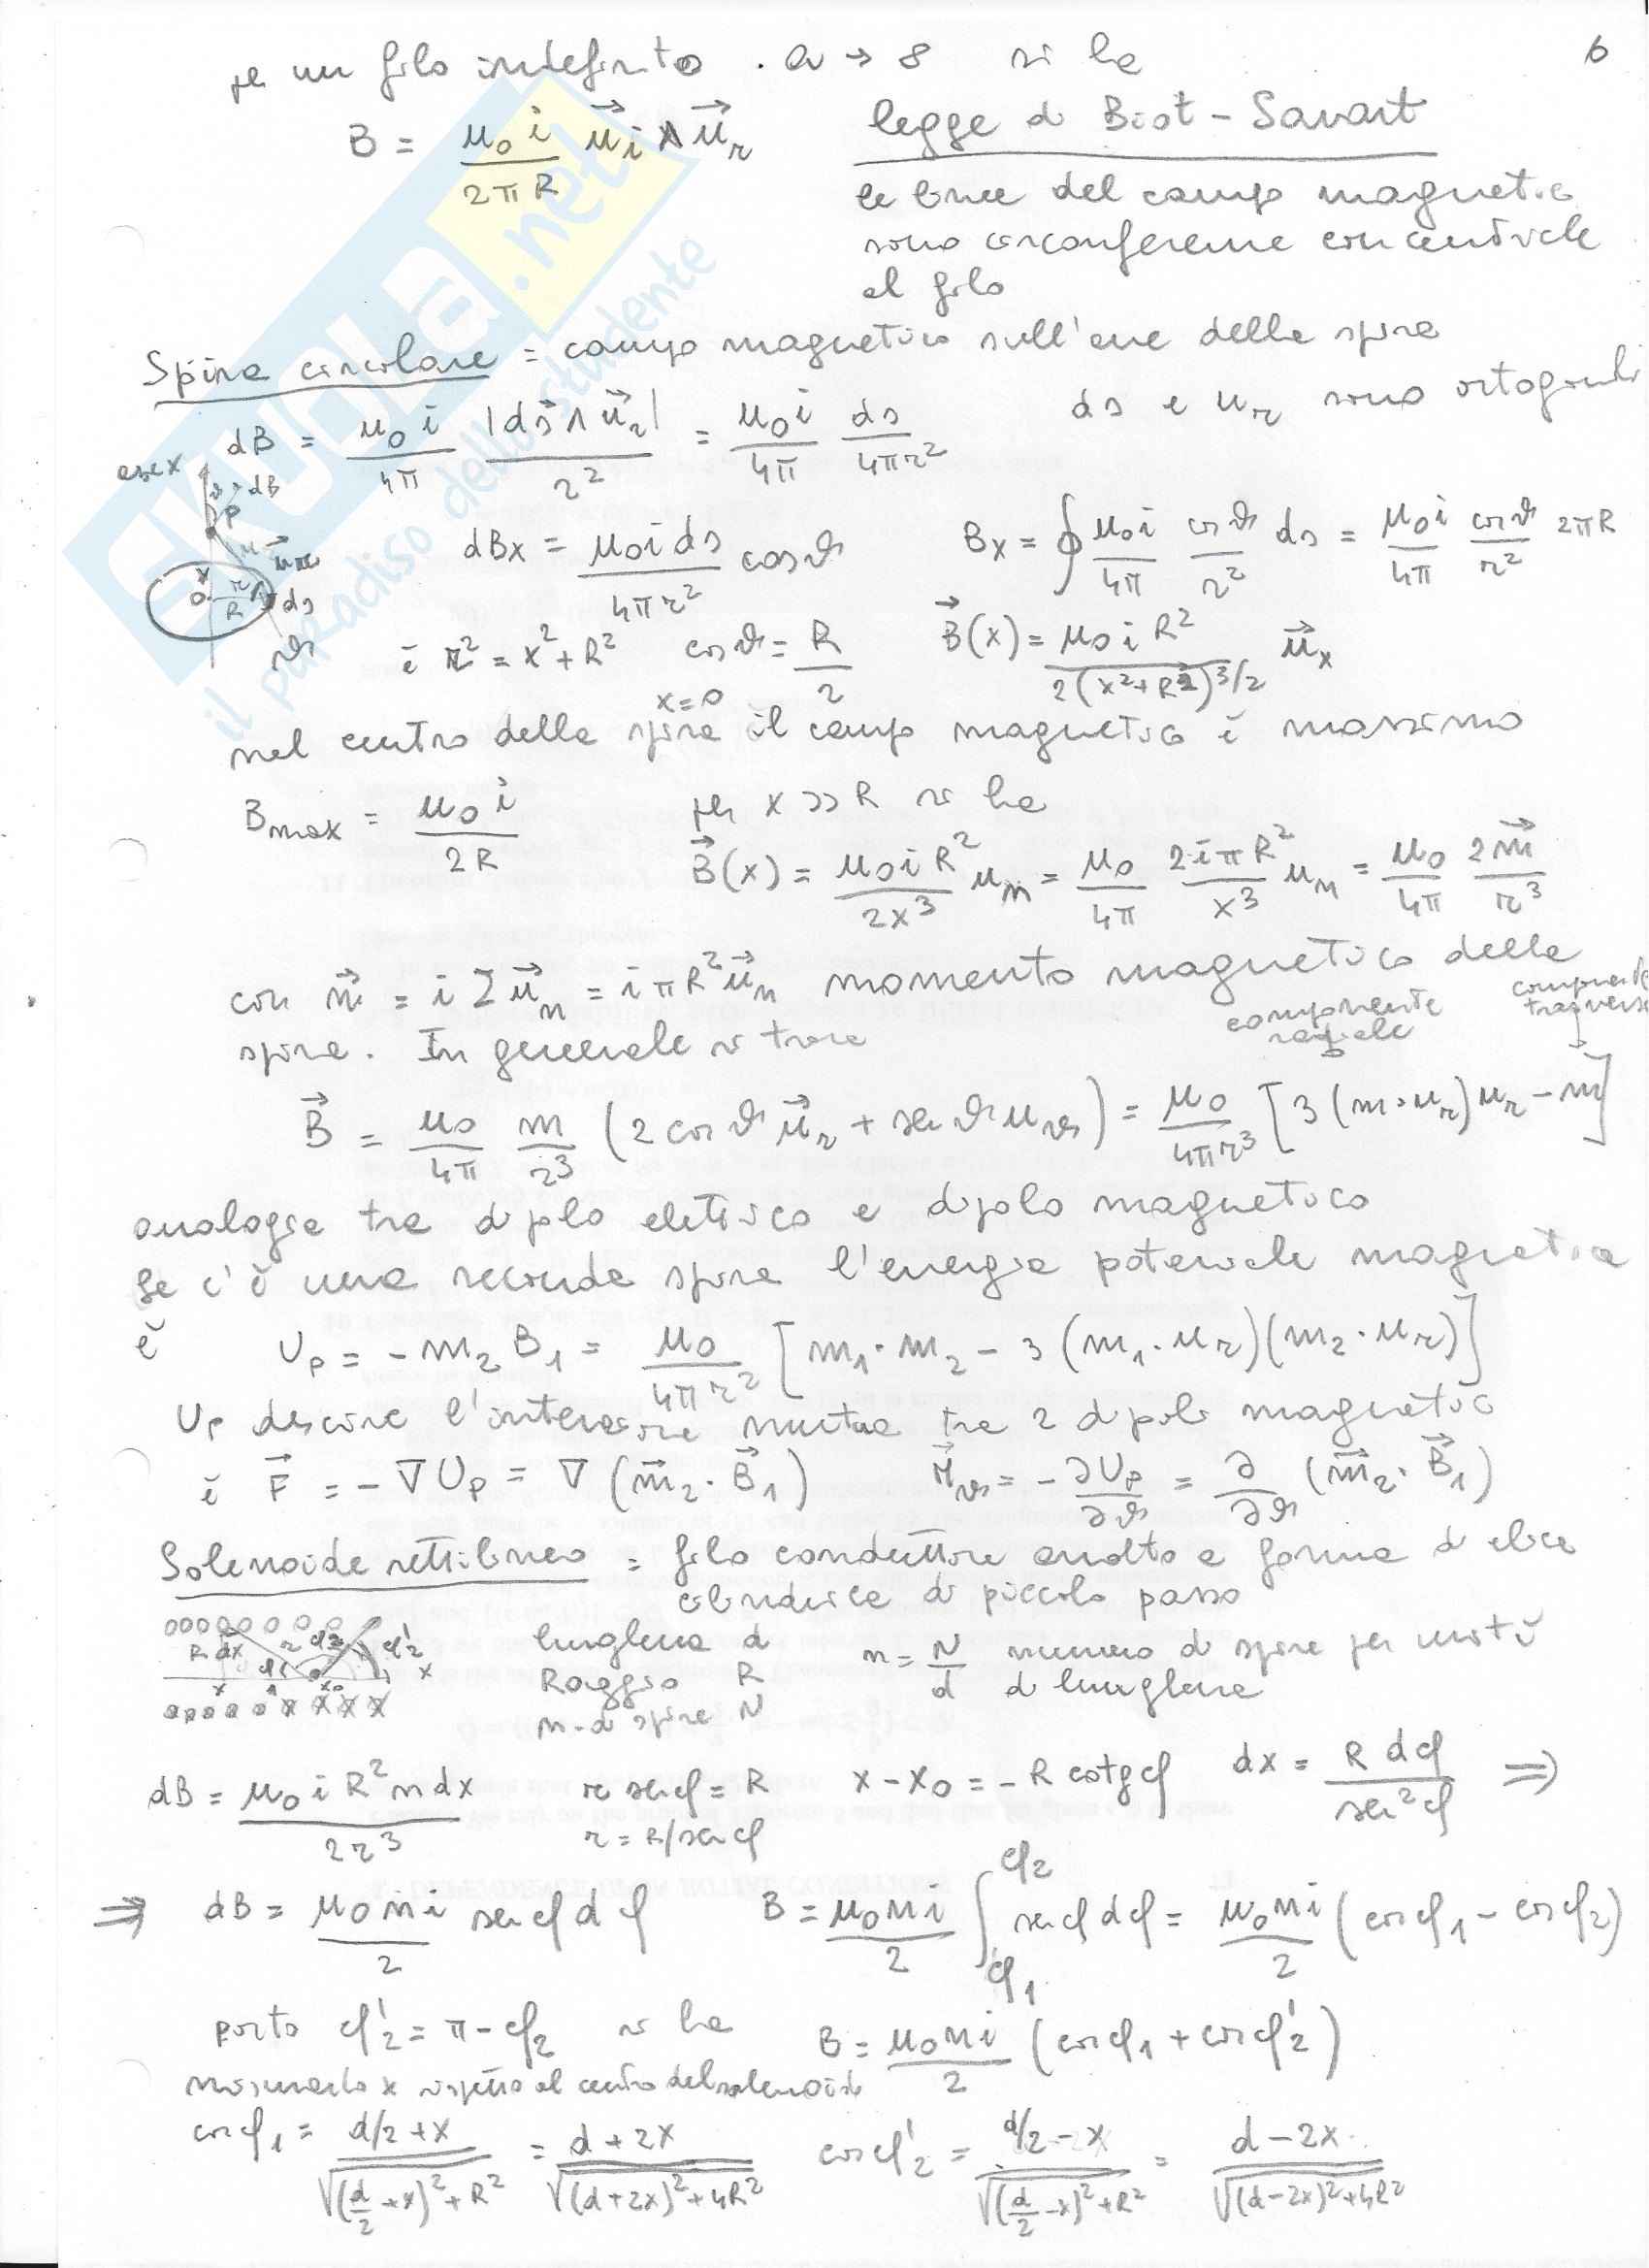 6
per un filo indefinito . a → ∞ si ha
B = μ₀ i / 2πR u⃗i ∧ u⃗r
legge di Biot - Savart
le linee del campo magnetico
sono circonferenze concentriche
al filo
Spira circolare = campo magnetico sull'asse della spira
dB = μ₀ i / 4π |ds⃗ ∧ u⃗r| / r² = μ₀ i / 4π ds / 4πr² ds e ur sono ortogonali
asse x
ϑ dB
P
x
O r
R
ds
ϑ
dBx = μ₀ i ds / 4πr² cosϑ Bx = ∮ μ₀ i / 4π cosϑ / r² ds = μ₀ i / 4π cosϑ / r² 2πR
è r² = x² + R² cosϑ = R / r B⃗(x) = μ₀ i R² / 2(x²+R²)^3/2 u⃗x
x=0
nel centro della spira il campo magnetico è massimo
Bmax = μ₀ i / 2R per x >> R si ha
B⃗(x) = μ₀ i R² / 2x³ un = μ₀ / 4π 2iπR² / x³ un = μ₀ / 4π 2m⃗ / r³
con m⃗ = i Σ u⃗n = i πR² u⃗n momento magnetico della
spira. In generale si trova
componente radiale
componente trasversa
B⃗ = μ₀ / 4π m / r³ (2 cosϑ u⃗r + senϑ uϑ) = μ₀ / 4πr³ [3 (m · ur) ur - m]
analogia tra dipolo elettrico e dipolo magnetico
Se c'è una seconda spira l'energia potenziale magnetica
è Up = - m₂ B₁ = μ₀ / 4πr² [m₁ · m₂ - 3 (m₁ · ur)(m₂ · ur)]
Up descrive l'interazione mutua tra 2 dipoli magnetici
è F⃗ = - ∇Up = ∇ (m⃗₂ · B⃗₁) M⃗ϑ = - ∂Up / ∂ϑ = ∂ / ∂ϑ (m⃗₂ · B⃗₁)
Solenoide rettilineo = filo conduttore avvolto a forma di elica
cilindrica di piccolo passo
R dx r φ₂ φ'₂
x φ₁ x₀ x
lunghezza d
Raggio R
n. di spire N
n = N / d numero di spire per unità
di lunghezza
dB = μ₀ i R² n dx / 2r³ r senφ = R x - x₀ = - R cotgφ dx = R dφ / sen²φ ⇒
r = R/senφ
⇒ dB = μ₀ n i / 2 senφ dφ B = μ₀ n i / 2 ∫φ₁^φ₂ senφ dφ = μ₀ n i / 2 (cosφ₁ - cosφ₂)
posto φ'₂ = π - φ₂ si ha B = μ₀ n i / 2 (cosφ₁ + cosφ'₂)
misurando x rispetto al centro del solenoide
cosφ₁ = d/2 + x / √((d/2 + x)² + R²) = d + 2x / √((d+2x)² + 4R²) cosφ'₂ = d/2 - x / √((d/2 - x)² + R²) = d - 2x / √((d-2x)² + 4R²)
SKUOLA.net
il paradiso dello studente